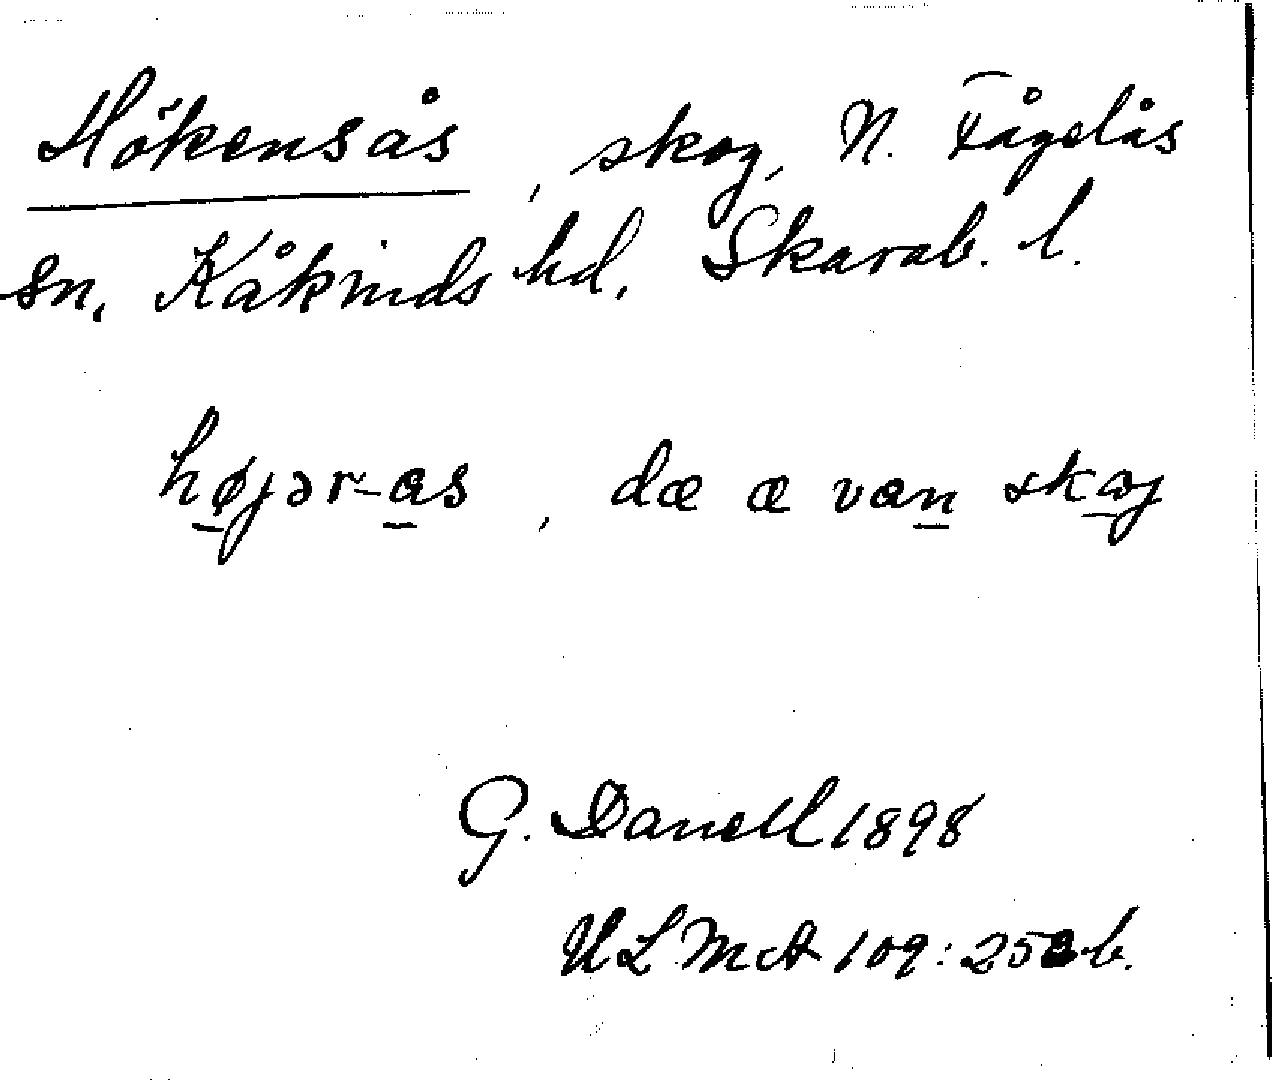 Hökensås, skog, N. Fågelås
sn, Kåkinds hd, Skarab. l.
højər-as, dæ æ van skoj
G. Danell 1898
ULMA 109: 252 b.